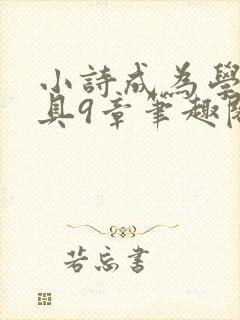 小詩成為學
具9章筆趣閱
若忘書